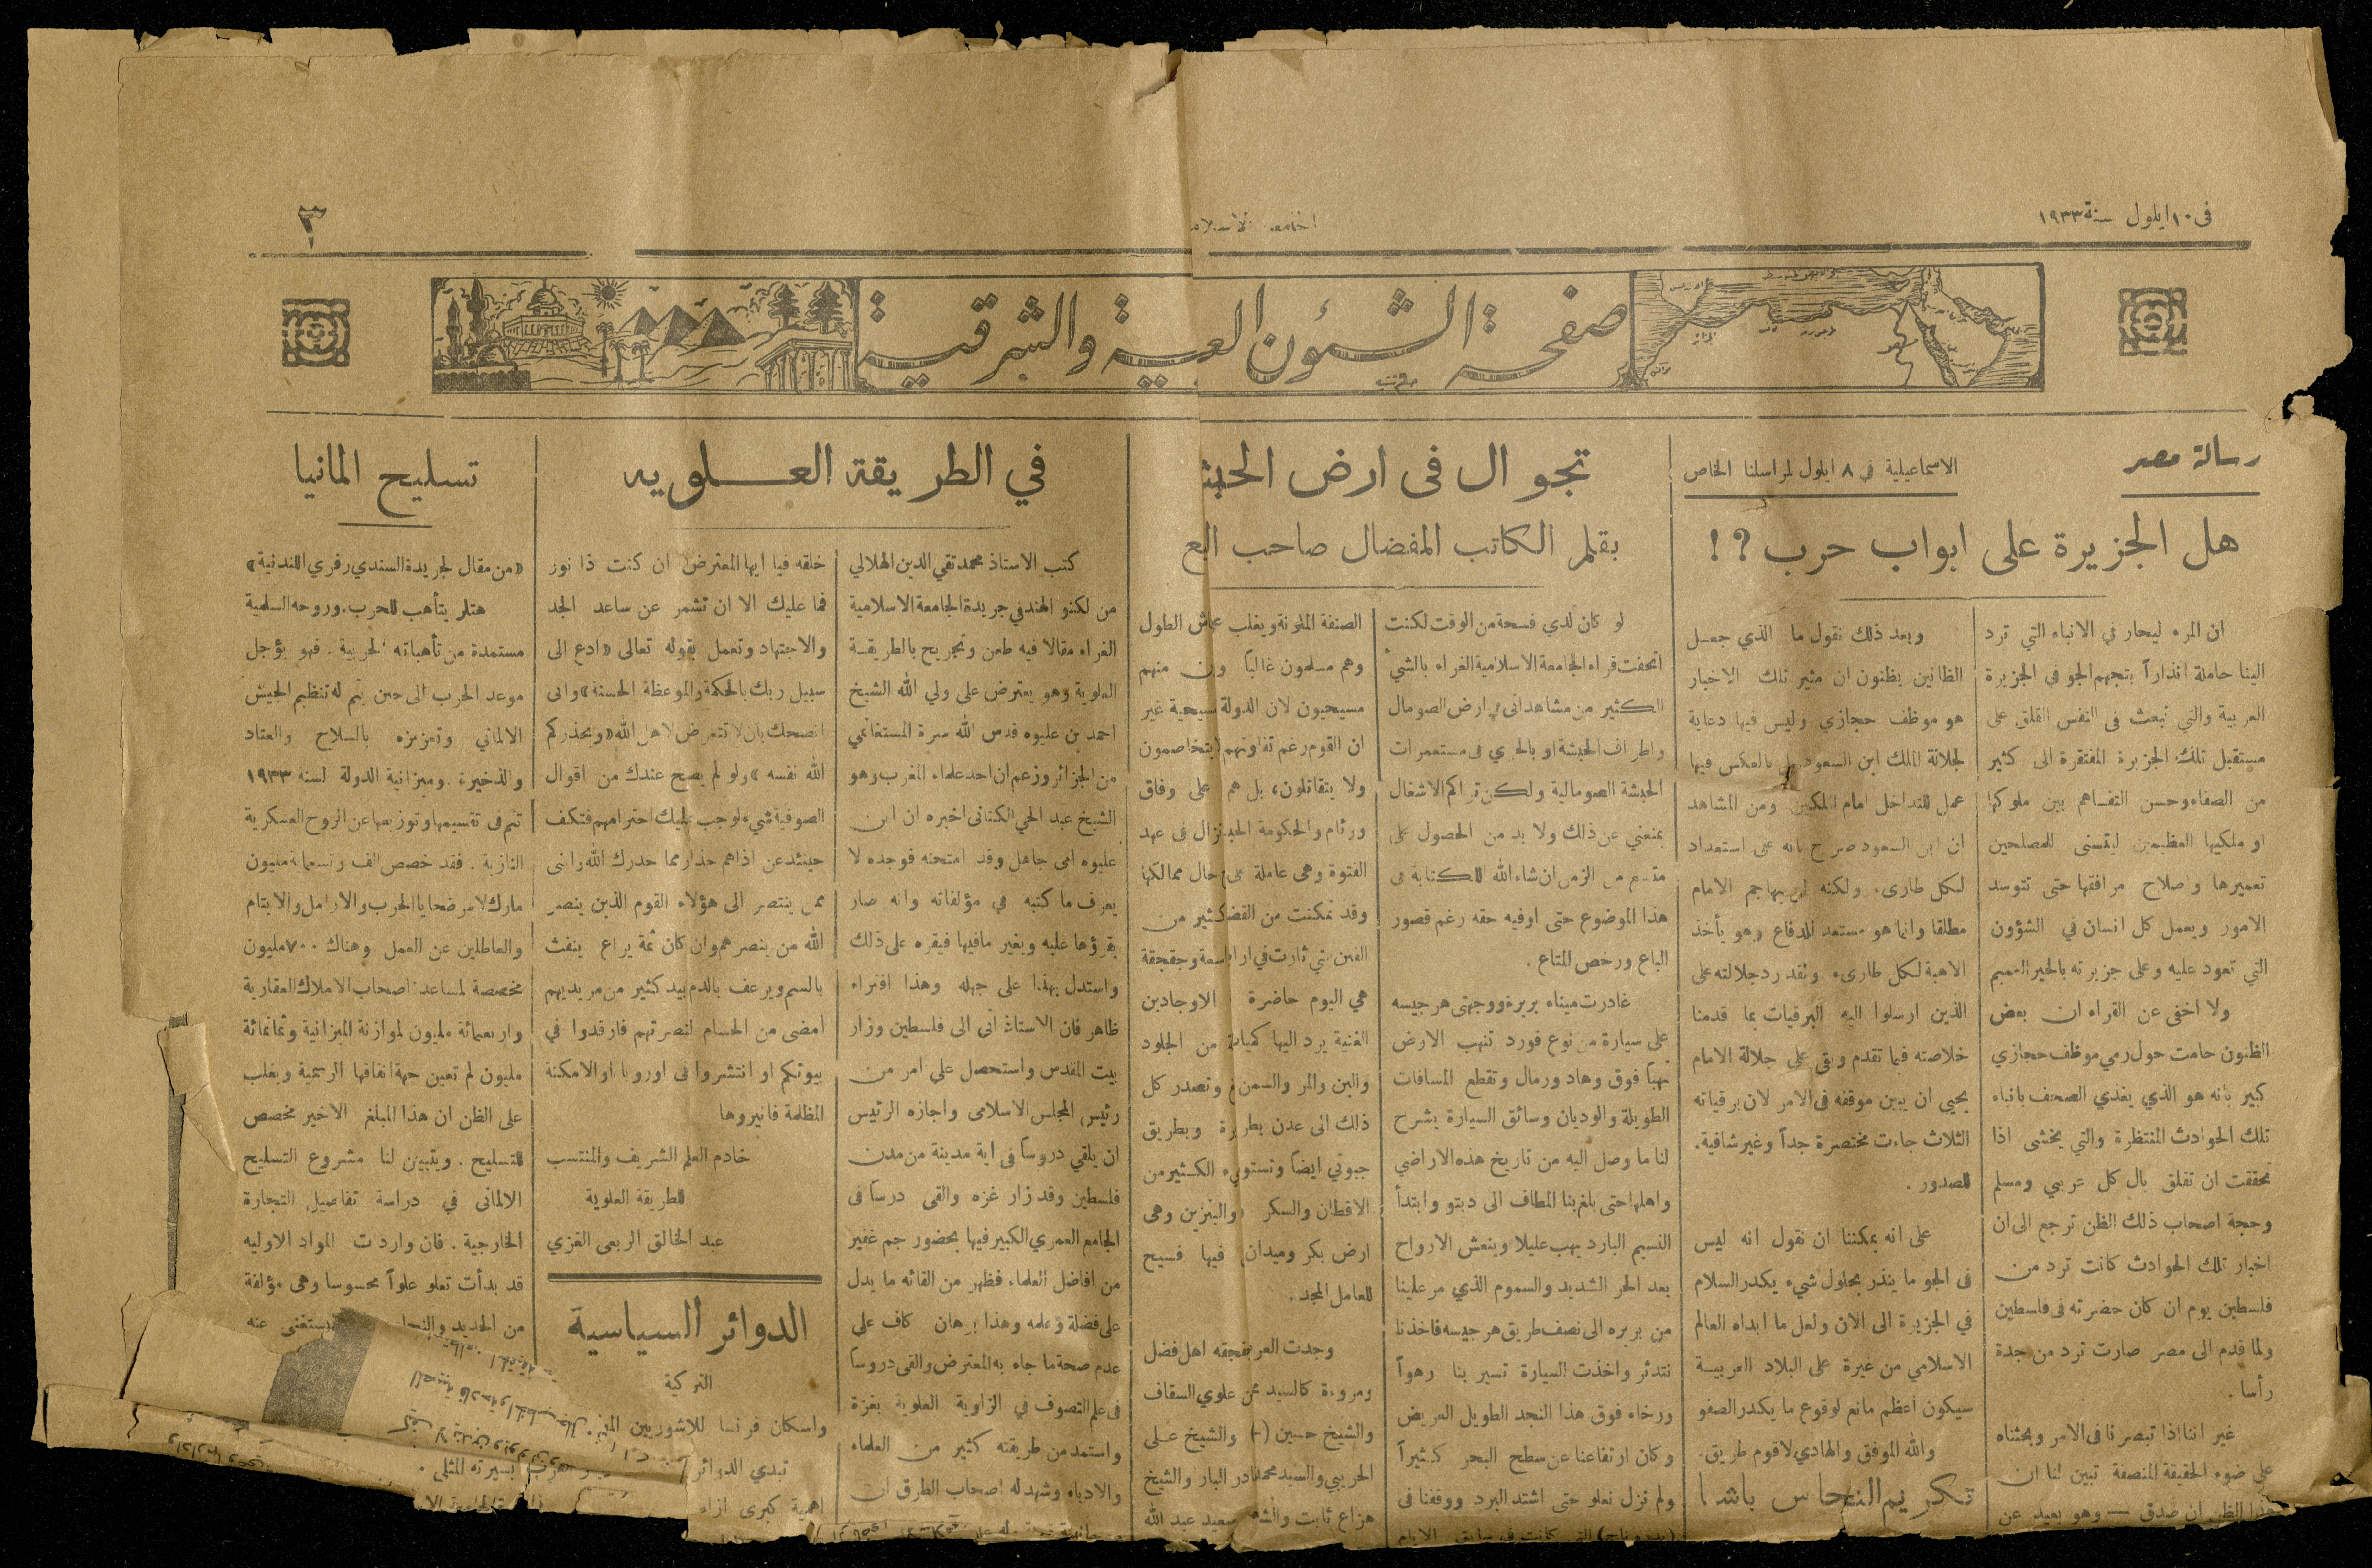 فى ١٠ ايلول سنة ١٩٣٣
٣
صفحة الشئون العربية والشرقية
رسالة مصر
الاسماعيلية في ٨ ايلول لمراسلنا الخاص
هل الجزيرة على ابواب حرب ؟ !
ان المرء ليحار في الانباء التي ترد
الينا حاملة انذاراً بتجهم الجو في الجزيرة
العربية والتي تبعث فى النفس القلق على
مستقبل تلك الجزيرة المفتقرة الى كثير
من الصفاء وحسن التفاهم بين ملوكها
او ملكيها العظيمين ليتسنى للمصلحين
تعميرها واصلاح مرافقها حتى تتوسد
الامور ويعمل كل انسان في الشؤون
التي تعود عليه وعلى جزيرته بالخير العميم
ولا اخفى عن القراء ان بعض
الظنون حامت حول رمي موظف حجازي
كبير بانه هو الذي يغذي الصحف بانباء
تلك الحوادث المنتظرة والتي يخشى اذا
تحققت ان تقلق بال كل عربي ومسلم
وحجة اصحاب ذلك الظن ترجع الى ان
اخبار تلك الحوادث كانت ترد من
فلسطين يوم ان كان حضرته فى فلسطين
ولما قدم الى مصر صارت ترد من جدة
رأسا .
غير اننا اذا تبصرنا فى الامر وبحثناه
على ضوء الحقيقة المنصفة تبين لنا ان
هذا الظن ان صدق — وهو بعيد عن
وبعد ذلك نقول ما الذي جعل
الظانين يظنون ان مثير تلك الاخبار
هو موظف حجازي وليس فيها دعاية
لجلالة الملك ابن السعود بل بالعكس فيها
عمل للتداخل امام الملكين ومن المشاهد
ان ابن السعود صرح بانه على استعداد
لكل طارىء ولكنه لن يهاجم الامام
مطلقا وانما هو مستعد للدفاع وهو يأخذ
الاهبة لكل طارىء ولقد رد جلالته على
الذين ارسلوا اليه البرقيات بما قدمنا
خلاصته فيما تقدم وبقى على جلالة الامام
يحيى ان يبين موقفه فى الامر لان برقياته
الثلاث جاءت مختصرة جداً وغير شافية.
للصدور .
على انه يمكننا ان نقول انه ليس
فى الجو ما ينذر بحلول شيء يكدر السلام
في الجزيرة الى الان ولعل ما ابداه العالم
الاسلامي من غيرة على البلاد العربية
سيكون اعظم مانع لوقوع ما يكدر الصفو
والله الموفق والهادي لاقوم طريق.
تكريم النحاس باشا
تجوال فى ارض الحبش
بقلم الكاتب المفضال صاحب
لو كان لدي فسحة من الوقت لكنت
اتحفت قراء الجامعة الاسلامية الغراء بالشيء
الكثير من مشاهداتى في ارض الصومال
واطراف الحبشة او بالحري فى مستعمرات
الحبشة الصومالية ولكن تراكم الاشغال
يمنعني عن ذلك ولا بد من الحصول على
متسع من الزمن ان شاء الله للكتابة فى
هذا الموضوع حتى اوفيه حقه رغم قصور
الباع ورخص المتاع .
غادرت ميناء بربرة ووجهتى هرجيسه
على سيارة من نوع فورد تنهب الارض
نهباً فوق وهاد ورمال وتقطع المسافات
الطويلة والوديان وسائق السيارة يشرح
لنا ما وصل اليه من تاريخ هذه الاراضي
واهلها حتى بلغ بنا المطاف الى دبتو وابتدأ
النسيم البارد يهب عليلا وينعش الارواح
بعد الحر الشديد والسموم الذي مر علينا
من بربره الى نصف طريق هرجيسه فاخذنا
نتدثر واخذت السيارة تسير بنا رهواً
ورخاء فوق هذا النجد الطويل العريض
وكان ارتفاعنا عن سطح البحر كثيراً
ولم نزل نعلو حتى اشتد البرد ووقفنا فى
الصنفة الملونة ويغلب الطول
وهم مسلمون غالباً منهم
مسيحيون لان الدولة مسيحية غير
ان القوم رغم تفاوتهم يتخاصمون
ولا يتقاتلون، بل هم على وفاق
ووئام والحكومة فى عهد
الفتوة وهى عاملة حال ممالكها
وقد تمكنت من كثير من
الفتن التي ثارت في وجقجقة
هي اليوم حاضرة الاوجادين
الغنية يرد اليها كميات من الجلود
والبن والمر والسمن وتصدر كل
ذلك الى عدن وبطريق
جيبوتي ايضاً وتستورد الكثير من
الاقطان والسكر والبنزين وهى
ارض بكر وميدان فيها فسيح
للعامل المجد.
وجدت اهل فضل
ومروءة كالسيد علوي السقاف
والشيخ حسين والشيخ علي
الحريبي والسيد البار والشيخ
هزاع ثابت سعيد عبد الله
في الطريقة العلويه
كتب الاستاذ محمد تقي الدين الهلالي
من لكنو الهند في جريدة الجامعة الاسلامية
الغراء مقالا فيه طعن وتجريح بالطريقة
العلوية وهو يعترض على ولي الله الشيخ
احمد بن عليوه قدس الله سرة المستغانمي
من الجزائر وزعم ان احد علماء المغرب وهو
الشيخ عبد الحي الكتانى اخبره ان ابن
عليوه امى جاهل وقد امتحنه فوجده لا
يعرف ما كتبه في مؤلفاته وانه صار
يقرؤها عليه ويغير مافيها فيقره على ذلك
واستدل بهذا على جهله وهذا افتراء
ظاهر فان الاستاذ اتى الى فلسطين وزار
بيت المقدس واستحصل على امر من
رئيس المجلس الاسلامى واجازه الرئيس
ان يلقي دروساً فى اية مدينة من مدن
فلسطين وقد زار غزه والقى درساً فى
الجامع العمري الكبير فيها بحضور جم غفير
من افاضل العلماء فظهر من القائه ما يدل
على فضلة وعلمه وهذا برهان كاف على
عدم صحة ما جاء به المعترض والقى دروساً
فى علم التصوف في الزاوية العلوية بغزة
واستمد من طريقته كثير من العلماء
والادباء وشهد له اصحاب الطرق ان
خلقه فيا ايها المعترض ان كنت ذا نور
فما عليك الا ان تشمر عن ساعد الجد
والاجتهاد وتعمل بقوله تعالى «ادع الى
سبيل ربك بالحكمة والموعظة الحسنة» وانى
انصحك بان لا تتعرض لاهل الله «ويحذركم
الله نفسه» ولو لم يصح عندك من اقوال
الصوفية شيء لوجب عليك احترامهم فتكف
حينئذ عن اذاهم حذار مما حذرك الله وانى
ممن ينتصر الى هؤلاء القوم الذين ينصر
الله من ينصرهم وان كان ثمة يراع ينفث
بالسم ويرعف بالدم بيد كثير من مريديهم
امضى من الحسام لنصرتهم فارقدوا في
بيوتكم او انتشروا فى اوروبا او الامكنة
المظلمة فانيروها
خادم العلم الشريف والمنتسب
للطريقة العلوية
عبد الخالق الربعى الغزي
الدوائر السياسية
التركية
واسكان فرنسا للاشوريين
تبدي الدوائر
اهمية كبرى ازاء
تسليح المانيا
«من مقال لجريدة السندي رفري اللندنية»
هتلر يتأهب للحرب. وروحه السلمية
مستمدة من تأهباته الحربية . فهو يؤجل
موعد الحرب الى حين يتم له تنظيم الجيش
الالماني وتعزيزه بالسلاح والعتاد
والذخيرة . وميزانية الدولة لسنة ١٩٣٣
تنم فى تقسيمها وتوزيعها عن الروح العسكرية
النازية . فقد خصص الف وتسعماية مليون
مارك لاسر ضحايا الحرب والارامل والايتام
والعاطلين عن العمل . وهناك ٧٠٠ مليون
مخصصة لمساعدة اصحاب الاملاك العقارية
واربعمائة مليون لموازنة الميزانية وثمانمائة
مليون لم تعين جهة انفاقها الرسمية ويغلب
على الظن ان هذا المبلغ الاخير مخصص
للتسليح . ويتبين لنا مشروع التسليح
الالمانى في دراسة تفاصيل التجارة
الخارجية . فان واردات المواد الاوليه
قد بدأت تعلو علواً محسوسا وهى مؤلفة
من الحديد يستغنى عنه
بسيرته المثلى .